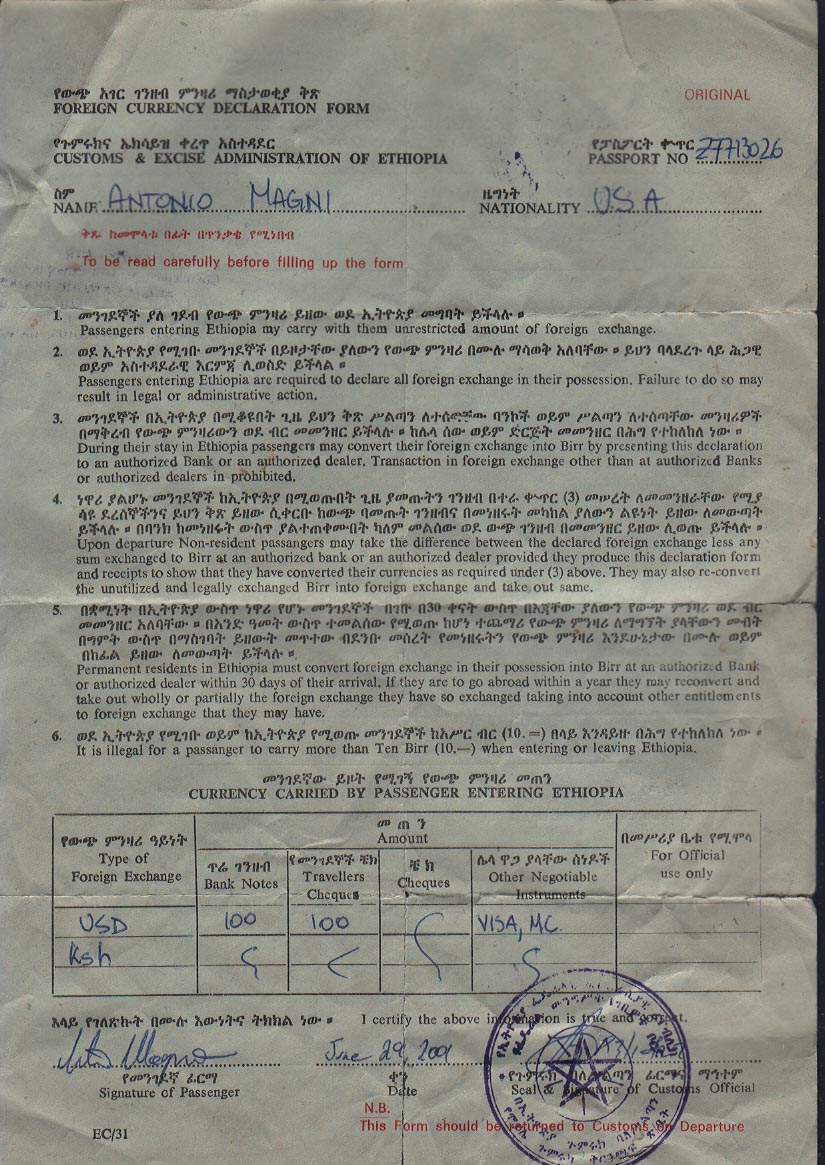 የውጭ አገር ገንዘብ ምንዛሪ ማስታወቂያ ቅጽ
ORIGINAL
FOREIGN CURRENCY DECLARATION FORM
የጉምሩክና ኤክሳይዝ ቀረጥ አስተዳደር
የፓስፖርት ቍጥር
CUSTOMS & EXCISE ADMINISTRATION OF ETHIOPIA
PASSPORT NO Z7713026
ስም
ዜግነት
NAME ANTONIO MAGNI
NATIONALITY USA
ቅጹ ከመሞላቱ በፊት በጥንቃቄ የሚነበብ
To be read carefully before filling up the form
1. መንገደኞች ያለ ገደብ የውጭ ምንዛሪ ይዘው ወደ ኢትዮጵያ መግባት ይችላሉ ።
Passengers entering Ethiopia may carry with them unrestricted amount of foreign exchange.
2. ወደ ኢትዮጵያ የሚገቡ መንገደኞች በይዞታቸው ያለውን የውጭ ምንዛሪ በሙሉ ማሳወቅ አለባቸው ። ይህን ባላደረጉ ላይ ሕጋዊ
ወይም አስተዳደራዊ እርምጃ ሊወስድ ይችላል ።
Passengers entering Ethiopia are required to declare all foreign exchange in their possession. Failure to do so may
result in legal or administrative action.
3. መንገደኞች በኢትዮጵያ በሚቆዩበት ጊዜ ይህን ቅጽ ሥልጣን ለተሰጣቸው ባንኮች ወይም ሥልጣን ለተሰጣቸው መንዛሪዎች
በማቅረብ የውጭ ምንዛሪውን ወደ ብር መመንዘር ይችላሉ ። ከሌላ ሰው ወይም ድርጅት መመንዘር በሕግ የተከለከለ ነው ።
During their stay in Ethiopia passengers may convert their foreign exchange into Birr by presenting this declaration
to an authorized Bank or an authorized dealer. Transaction in foreign exchange other than at authorized Banks
or authorized dealers in prohibited.
4. ነዋሪ ያልሆኑ መንገደኞች ከኢትዮጵያ በሚወጡበት ጊዜ ያመጡትን ገንዘብ በተራ ቍጥር (3) መሠረት ለመመንዘራቸው የሚያ
ሳዩ ደረሰኞችንና ይህን ቅጽ ይዘው ሲቀርቡ ከውጭ ባመጡት ገንዘብና በመነዘሩት መካከል ያለውን ልዩነት ይዘው ለመውጣት
ይችላሉ ። በባንክ ከመነዘሩት ውስጥ ያልተጠቀሙበት ካለም መልሰው ወደ ውጭ ገንዘብ በመመንዘር ይዘው ሊወጡ ይችላሉ ።
Upon departure Non-resident passengers may take the difference between the declared foreign exchange less any
sum exchanged to Birr at an authorized bank or an authorized dealer provided they produce this declaration form
and receipts to show that they have converted their currencies as required under (3) above. They may also re-convert
the unutilized and legally exchanged Birr into foreign exchange and take out same.
5. በቋሚነት በኢትዮጵያ ውስጥ ነዋሪ የሆኑ መንገደኞች በገቡ በ30 ቀናት ውስጥ በእጃቸው ያለውን የውጭ ምንዛሪ ወደ ብር
መመንዘር አለባቸው ። በአንድ ዓመት ውስጥ ተመልሰው የሚወጡ ከሆነ ተጨማሪ የውጭ ምንዛሪ ለማግኘት ያላቸውን መብት
በግምት ውስጥ በማስገባት ይዘውት መጥተው በደንቡ መሰረት የመነዘሩትን የውጭ ምንዛሪ እንደሁኔታው በሙሉ ወይም
በከፊል ይዘው ለመውጣት ይችላሉ ።
Permanent residents in Ethiopia must convert foreign exchange in their possession into Birr at an authorized Bank
or authorized dealer within 30 days of their arrival. If they are to go abroad within a year they may reconvert and
take out wholly or partially the foreign exchange they have so exchanged taking into account other entitlements
to foreign exchange that they may have.
6. ወደ ኢትዮጵያ የሚገቡ ወይም ከኢትዮጵያ የሚወጡ መንገደኞች ከአሥር ብር (10.—) በላይ እንዳይዙ በሕግ የተከለከለ ነው ።
It is illegal for a passanger to carry more than Ten Birr (10.—) when entering or leaving Ethiopia.
መንገደኛው ይዞት የሚገኝ የውጭ ምንዛሪ መጠን
CURRENCY CARRIED BY PASSENGER ENTERING ETHIOPIA
የውጭ ምንዛሪ ዓይነት
Type of
Foreign Exchange
መጠን
Amount
በመሥሪያ ቤቱ የሚሞላ
For Official
use only
ጥሬ ገንዘብ
Bank Notes
የመንገደኞች ቼክ
Travellers
Cheques
ቼክ
Cheques
ሌላ ዋጋ ያላቸው ሰነዶች
Other Negotiable
Instruments
USD 100 100 VISA, MC.
Ksh
እላይ የገለጽኩት በሙሉ እውነትና ትክክል ነው ። I certify the above information is true and correct.
June 29, 2001
የመንገደኛ ፊርማ
ቀን
የጉምሩክ ባለሥልጣን ፊርማና ማኅተም
Signature of Passenger
Date
Seal & Signature of Customs Official
N.B.
This Form should be returned to Customs on Departure
EC/31